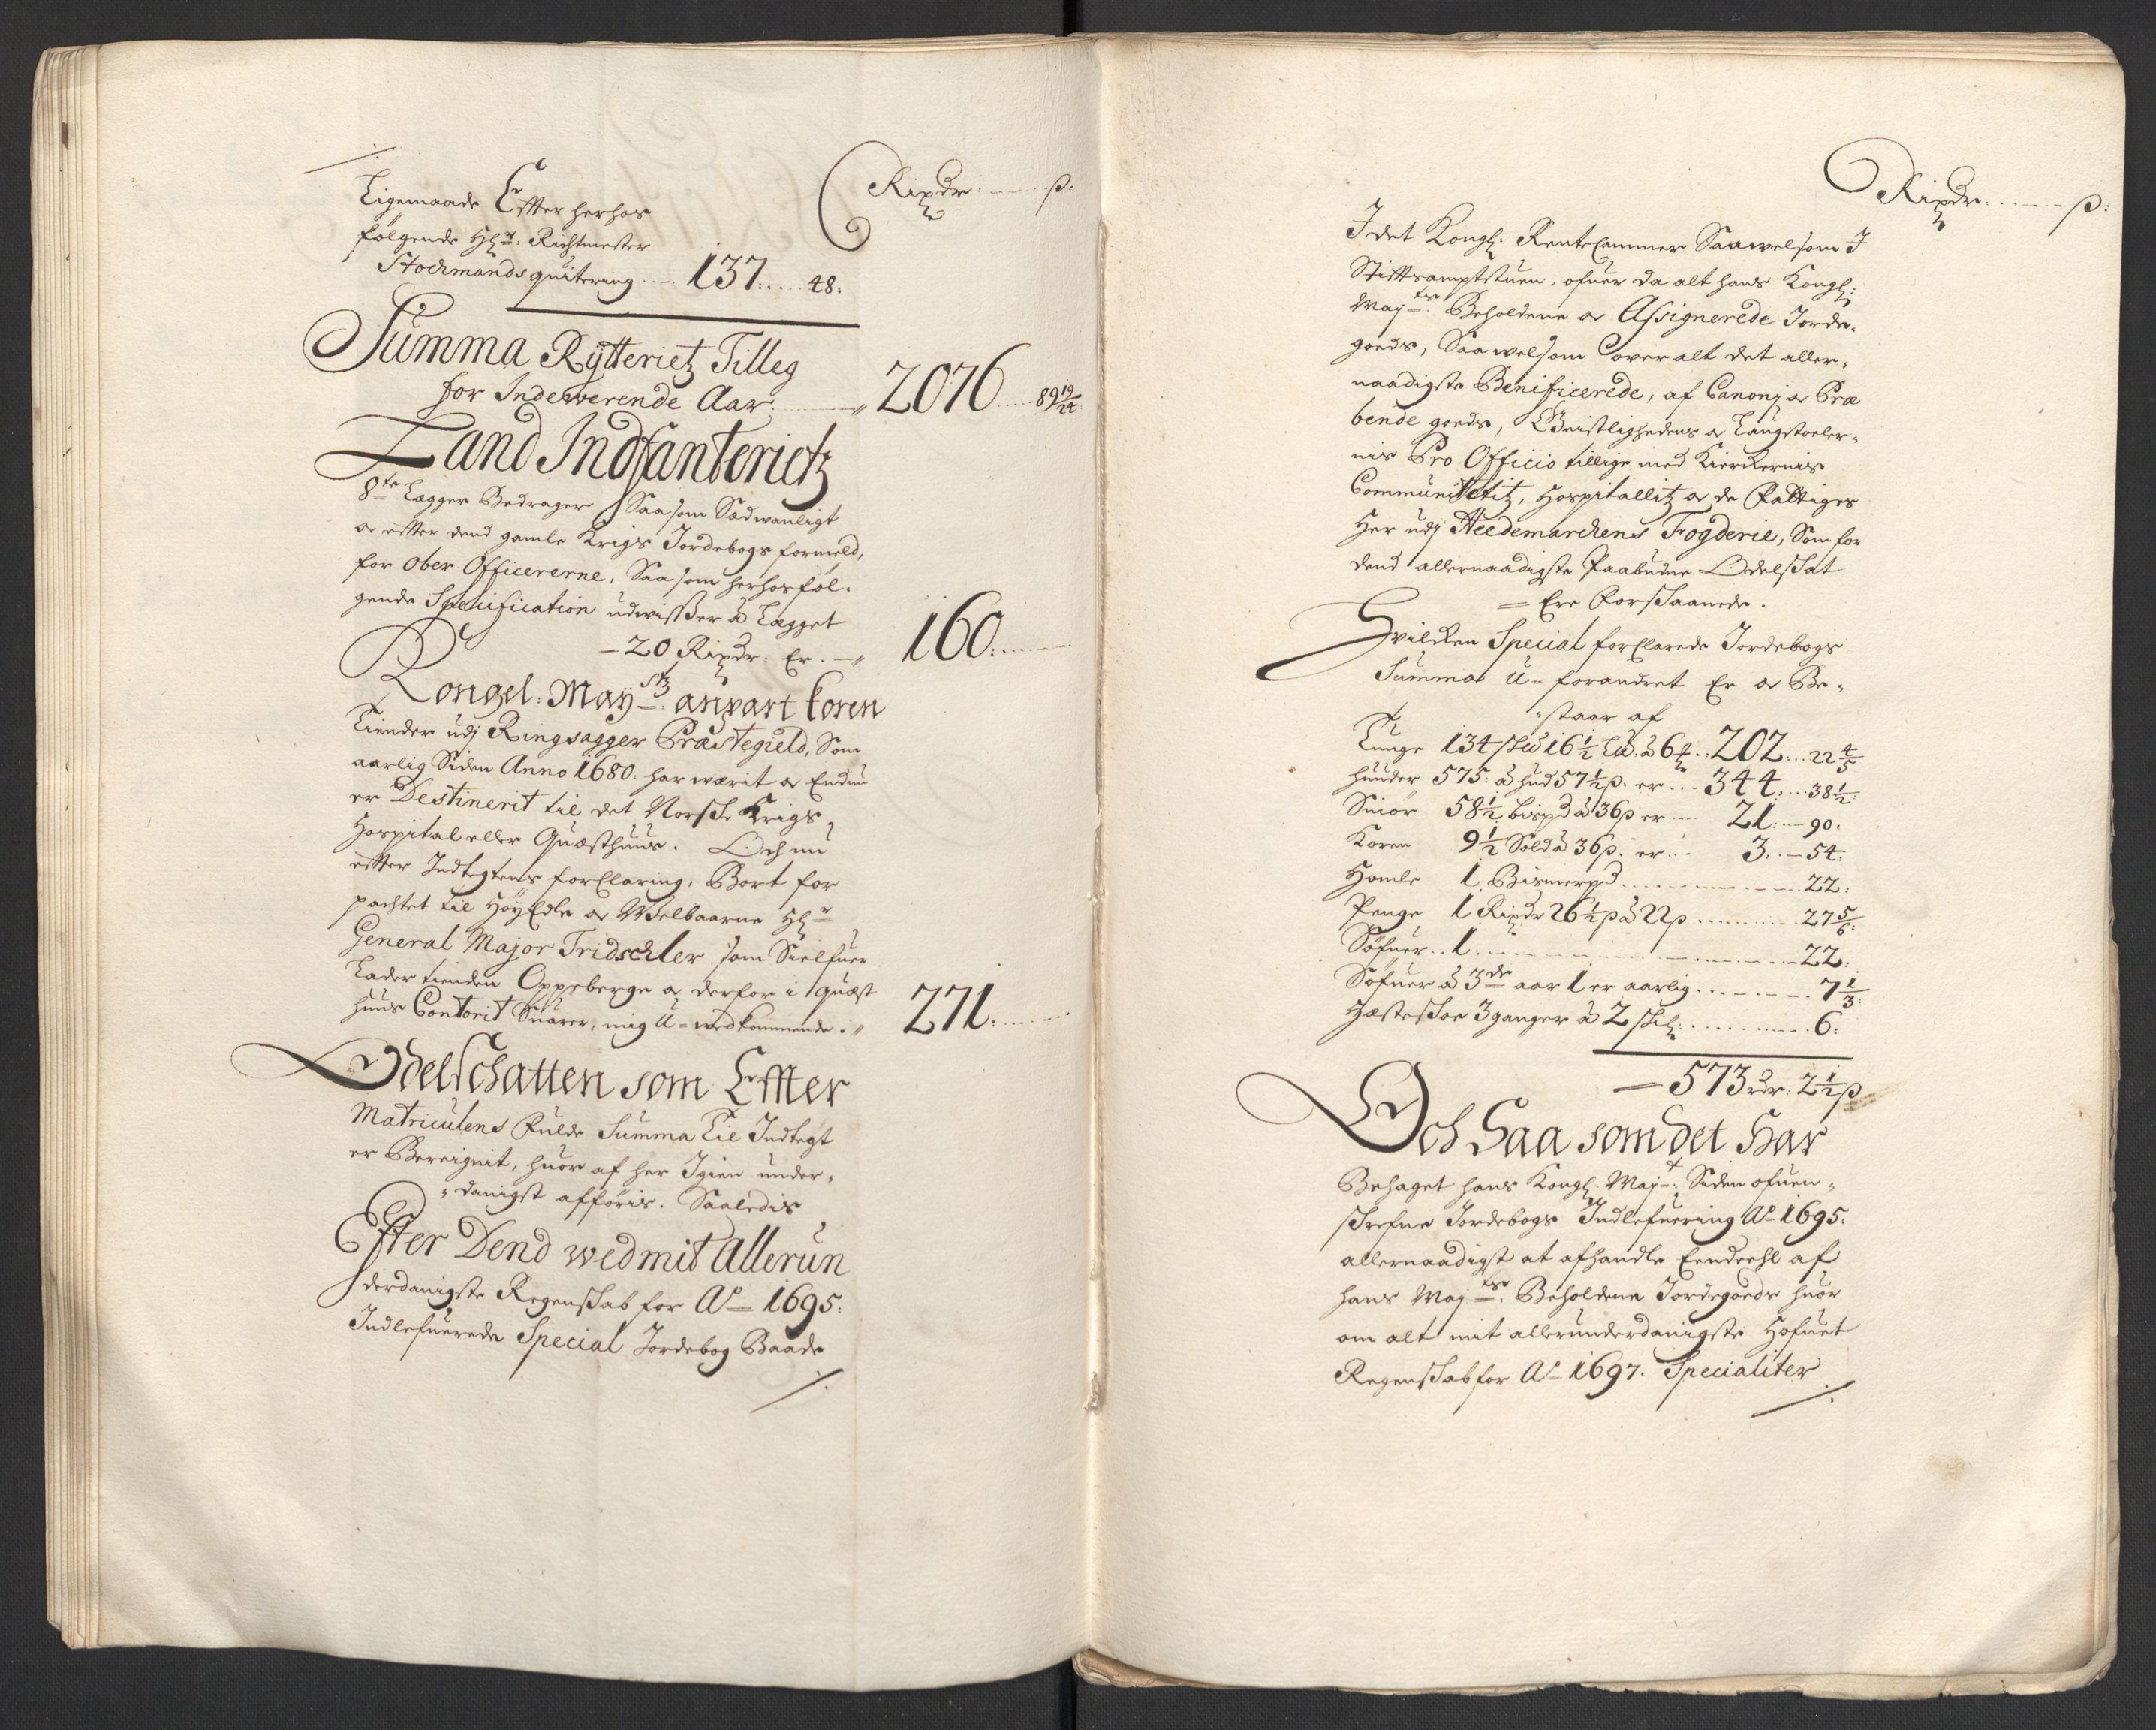 Rixdr ß:
Ligemaade Effter herhos
følgende Hl:r: Richtmester
Stochmands quitering 137: 48:
Summa Rÿtteriets Tilleg
for Indewerende Aar: 2076 89 19/24
Land Indfanterietz
8te Lægger Bedrager Saasom Sædwanligt
og effter dend gamle Krigs Jordebogs formeld,
for Ober Officererne, Saasom herhosføl-
gende Specification udwisser à Legget
20 Rixdr: Er 160:
Kongel: Maytz anpart Koren
Tiender udj Ringsagger Præstegield, Som
aarlig Siden Anno 1680: har wærit og Endnu
er Destinerit til det Norske Krigs
Hospital eller Quæsthuus. Och nu
effter Indtegtens forklaring, Bort for
pachtet til HøyEdle og Welbaarne Hl:r
General Major Tridschler som Sielfuer
Lader tienden Oppeberge og derfor i Quæst
huus Contorit Suarer, mig U-wedkommende: 271:
Odelschatten som Effter
Matriculens Fulde Summa Til Indtegt
er Bereignit, huor af her Igien under-
danigst afføris. Saaledis
Effter Dend wed mit Allerun
derdanigste Regenskab for Ao 1695:
Indlefuerede Special Jordebog Baade
Rixdr ß:
I det Kongl: RenteCammer Saawelsom I
Stifftsamptstuen, ofuer da alt hans Kongl:
Mayts: Beholdene og Assignerede Jorde-
goeds, Saawelsom over alt det aller-
naadigste Benificerede, af Canonj og Præ
bende goeds, Geistlighedens og Laugstoeler-
nis Pro Officio tillige med Kierkernis
Communitetitz, Hospitallitz og de Fattiges
Her udj Heedemarchens Fogderie, Som for
dend allernaadigste Paabudne Odelskat
Ere Forskaanede.
Hvilken Special forklarede Jordebogs
Summa U-forandret Er og Be-
staar af
Tunge 134 skd 16 1/2 Ld. à 6 202 22 4/5
Huuder 575: à hud 57 1/2 ß. er 344: 38 1/2:
Smør 58 1/2 Bispd à 36 ß er 21: 90:
Koren 9 1/2 Sold à 36 ß: er 3: 54:
Homle 1 Bismerpd 22:
Penge 1 Rixdr 26 1/2 ß à 22 ß 27 5/6:
Søfuer 1: 22:
Søfuer à 3de aar 1 er aarlig 7 1/3:
Hæsteskoe 3 ganger à 2 skil: 6:
573 rdr: 2 1/2 ß
Och Saa som det Har
Behaget hans Kongl: Mayt: Siden ofuen-
skrefne Jordebogs Indlefuering Ao 1695:
allernaadigst at afhandle Eendeehl af
hans Mayts: Beholdene Jordegoeds huor
om alt mit allerunderdanigste Hofuet
Regenskab for Ao 1697. Specialiter